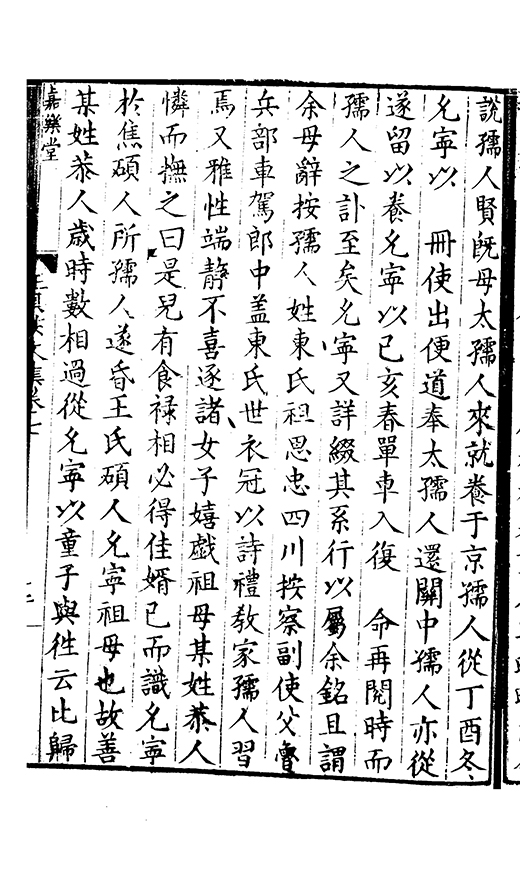 說孺人賢旣母太孺人來就養于京孺人從丁酉冬
允寧以　冊使出便道奉太孺人還關中孺人亦從
遂留以養允寧以己亥春單車入復　命再閱時而
孺人之訃至矣允寧又詳綴其系行以屬余銘且謂
余母辭按孺人姓東氏祖思忠四川按察副使父魯
兵部車駕郎中盖東氏世衣冠以詩禮敎家孺人習
焉又雅性端靜不喜逐諸女子嬉戯祖母某姓恭人
憐而撫之曰是兒有食禄相必得佳婿已而識允寧
於焦碩人所孺人遂昏王氏碩人允寧祖母也故善
某姓恭人歲時數相過從允寧以童子與徃云比歸
嘉樂堂
文集卷七